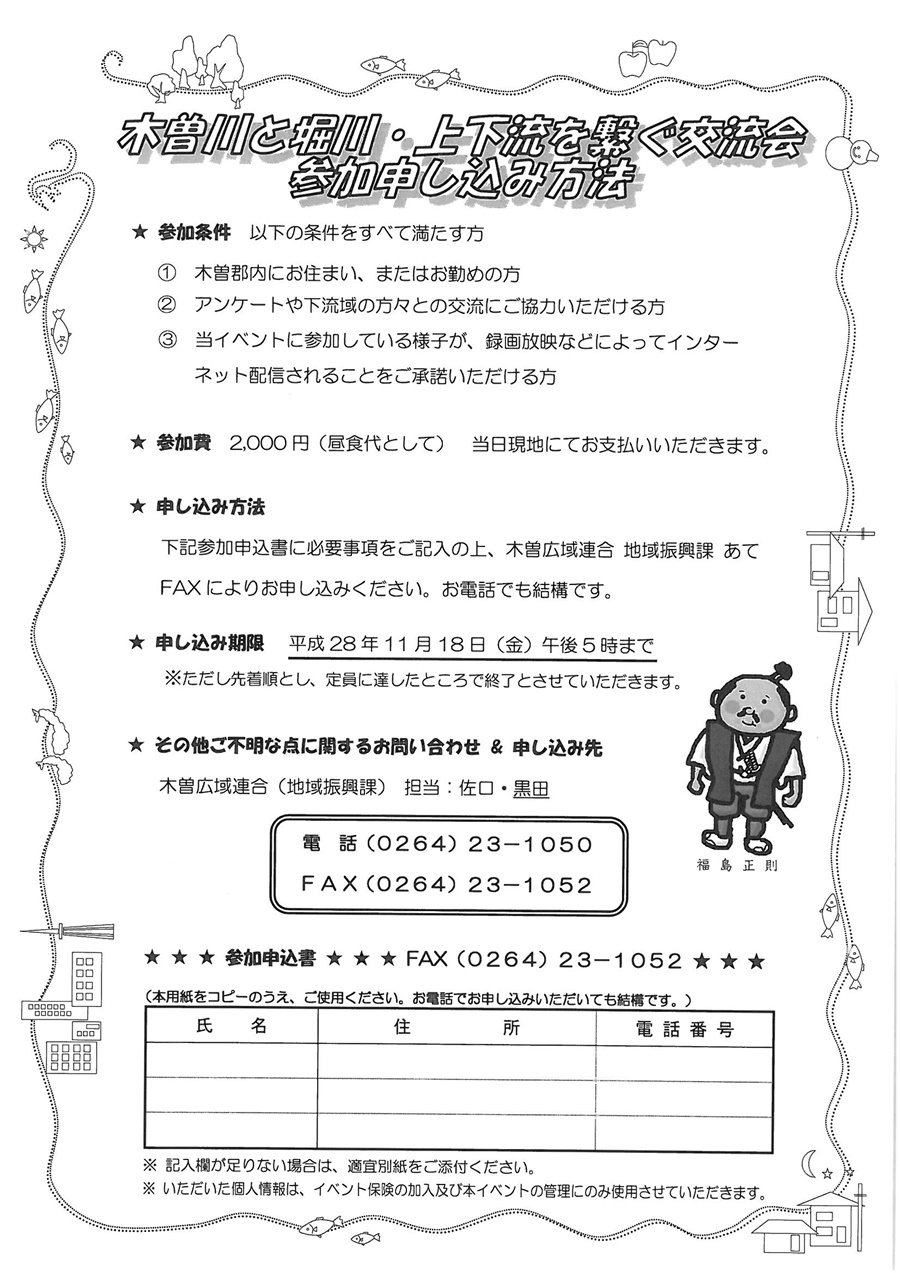 木曽川と堀川・上下流を繋ぐ交流会
参加申し込み方法
★ 参加条件　以下の条件をすべて満たす方
①　木曽郡内にお住まい、またはお勤めの方
②　アンケートや下流域の方々との交流にご協力いただける方
③　当イベントに参加している様子が、録画放映などによってインター
ネット配信されることをご承諾いただける方
★ 参加費　2,000円（昼食代として）　当日現地にてお支払いいただきます。
★ 申し込み方法
下記参加申込書に必要事項をご記入の上、木曽広域連合 地域振興課 あて
FAXによりお申し込みください。お電話でも結構です。
★ 申し込み期限　平成28年11月18日（金）午後5時まで
※ただし先着順とし、定員に達したところで終了とさせていただきます。
★ その他ご不明な点に関するお問い合わせ & 申し込み先
木曽広域連合（地域振興課）　担当：佐口・黒田
電　話（0264）23－1050
FAX（0264）23－1052
福島正則
★ ★ ★ 参加申込書 ★ ★ ★ FAX（0264）23－1052 ★ ★ ★
（本用紙をコピーのうえ、ご使用ください。お電話でお申し込みいただいても結構です。）
氏　名　住　所　電話番号
※ 記入欄が足りない場合は、適宜別紙をご添付ください。
※ いただいた個人情報は、イベント保険の加入及び本イベントの管理にのみ使用させていただきます。